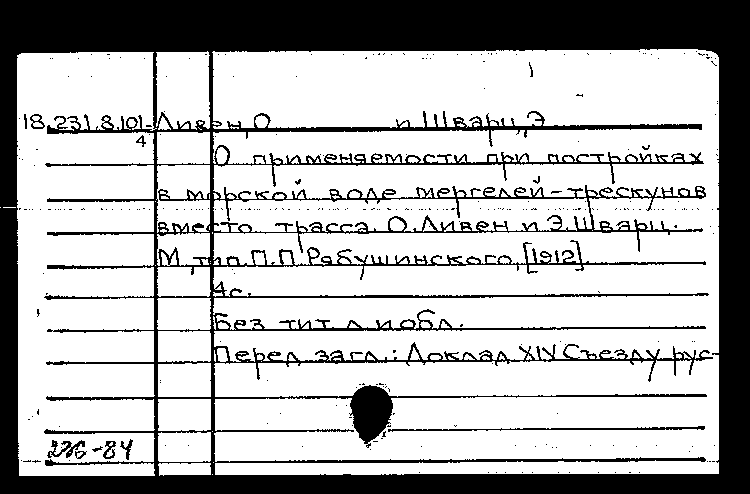 18.231.8.101- Ливен, О и Шварц, Э
4
О применяемости при постройках
в морской воде мергелей-трескунов
вместо трасса. О. Ливен и Э. Шварц.
М, тип. П.П. Рябушинского, [1912].
4с.
Без тит л и обл.
Перед загл.: Доклад XIV Съезду рус-
276-84